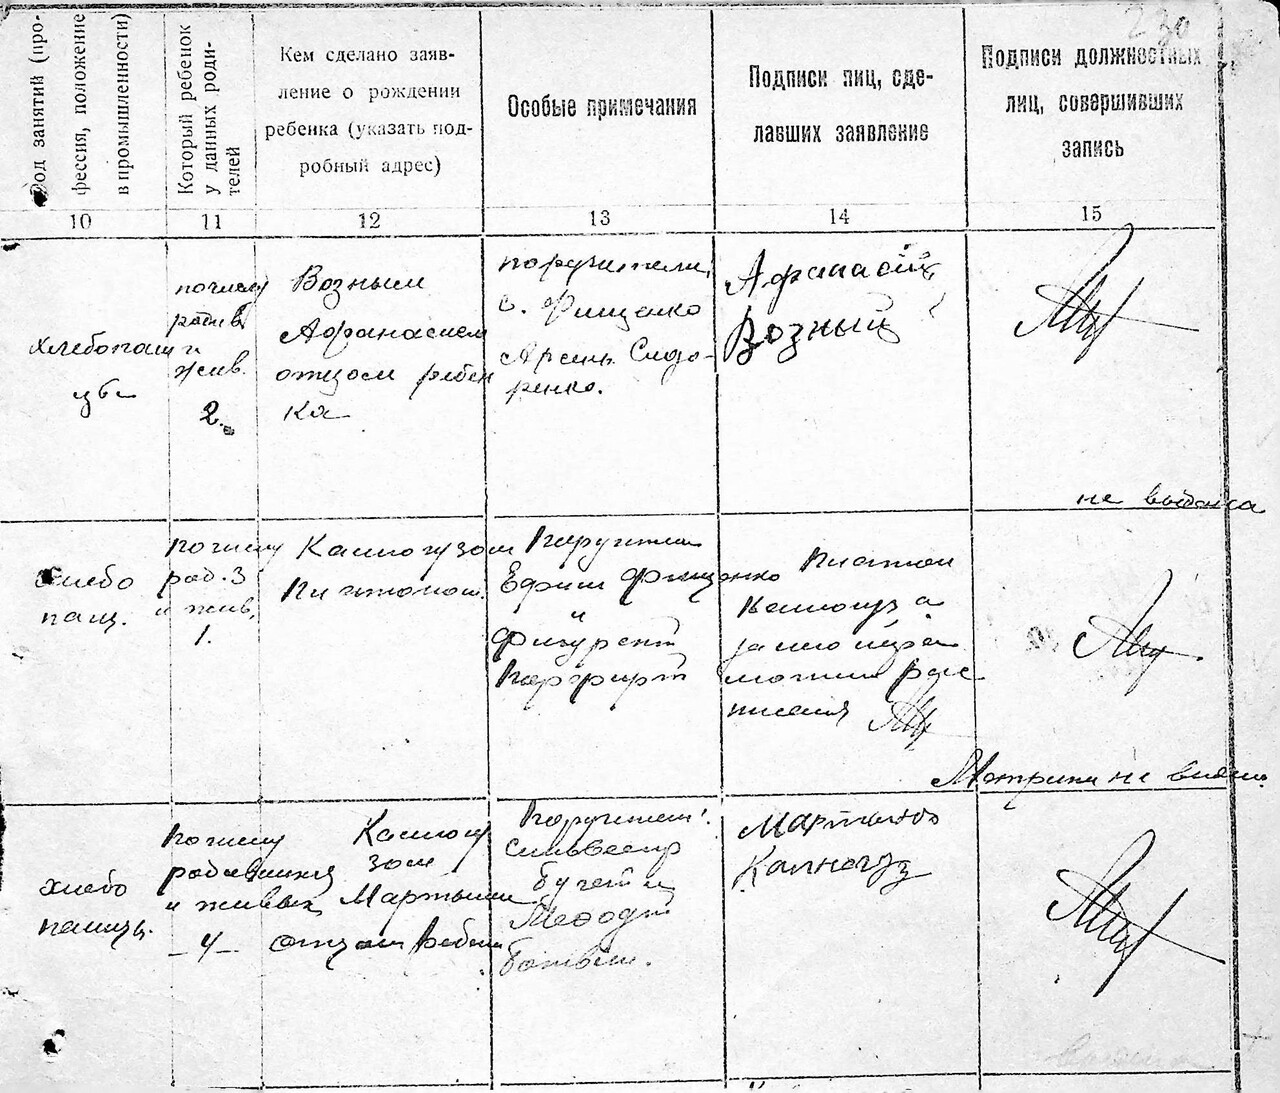 230
Род занятий (про-
фессия, положение
в промышленности)
Который ребенок
у данных роди-
телей
Кем сделано заяв-
ление о рождении
ребенка (указать под-
робный адрес)
Особые примечания
Подписи лиц, сде-
лавших заявление
Подписи должностных
лиц, совершивших
запись
10 11 12 13 14 15
хлебопаш
цы
по числу
родив
и
жив.
2.
Возным
Афанасием
отцом ребен
ка
поручители
Фищенко
Арсень Сидо-
ренко.
Афанасий
Возный
не выдана
хлебо
паш.
по числу
род. 3
и жив.
1.
Калногузом
Платоном.
Поручители
Ефим Фищенко
и
Порфирий
Платон
Калногуз а
за него негра
мотный рас
писался
Метрики не выдан.
хлебо
пашцы.
по числу
родившихся
и живых
-4-
Калногу
зом
Мартыном
отцом ребен
Поручители:
Сильвестр
Бугет и
Мефодий
Мартынь
Калногуз